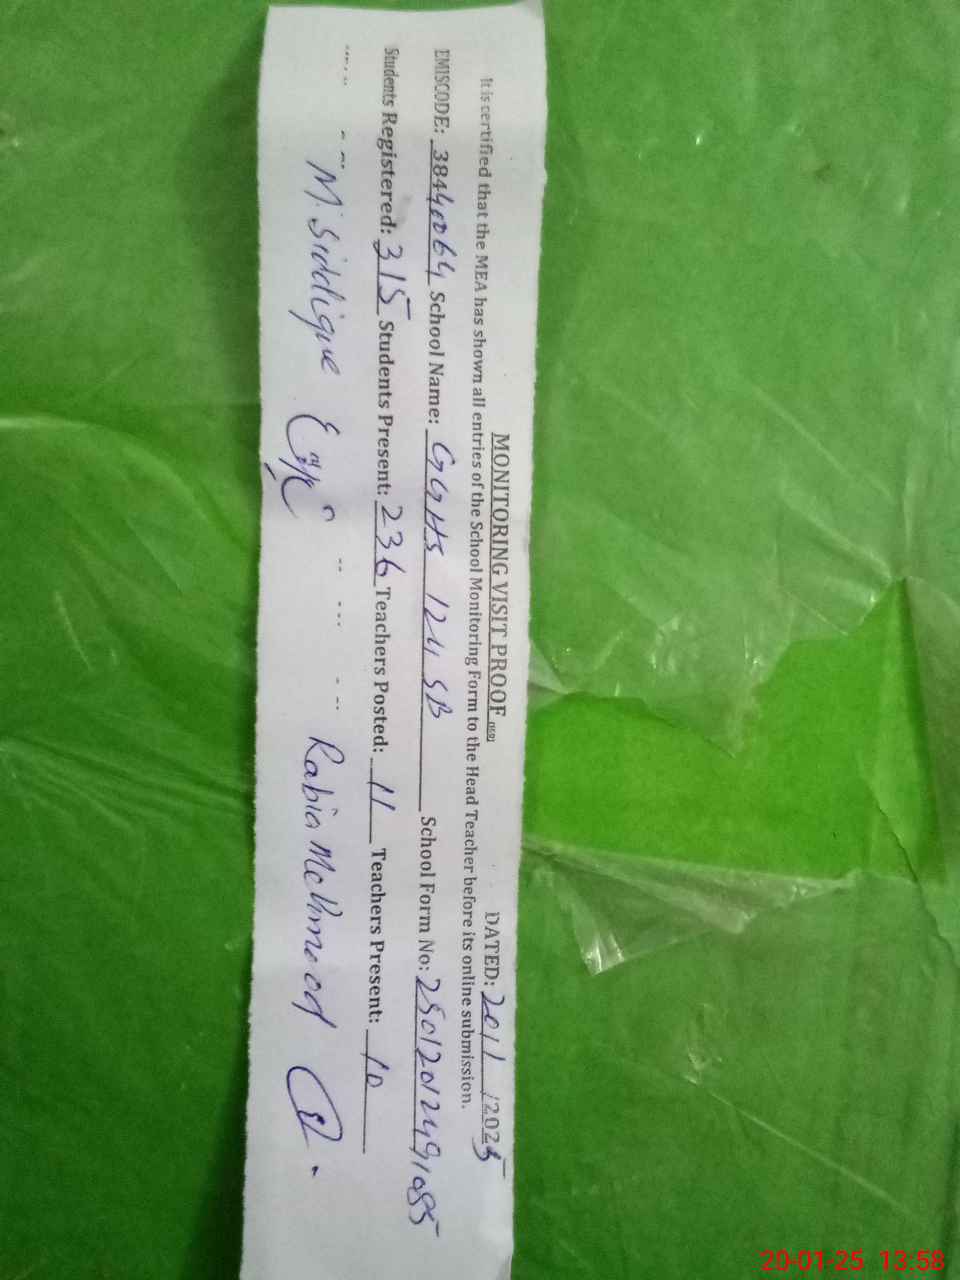 MONITORING VISIT PROOF DATED: 20/1/2025
It is certified that the MEA has shown all entries of the School Monitoring Form to the Head Teacher before its online submission.
EMISCODE: 38440064 School Name: GGHS 124 SB School Form No: 25012012491085
Students Registered: 315 Students Present: 236 Teachers Posted: 11 Teachers Present: 10
M. Siddique Rabia Mehmood
20-01-25 13:58